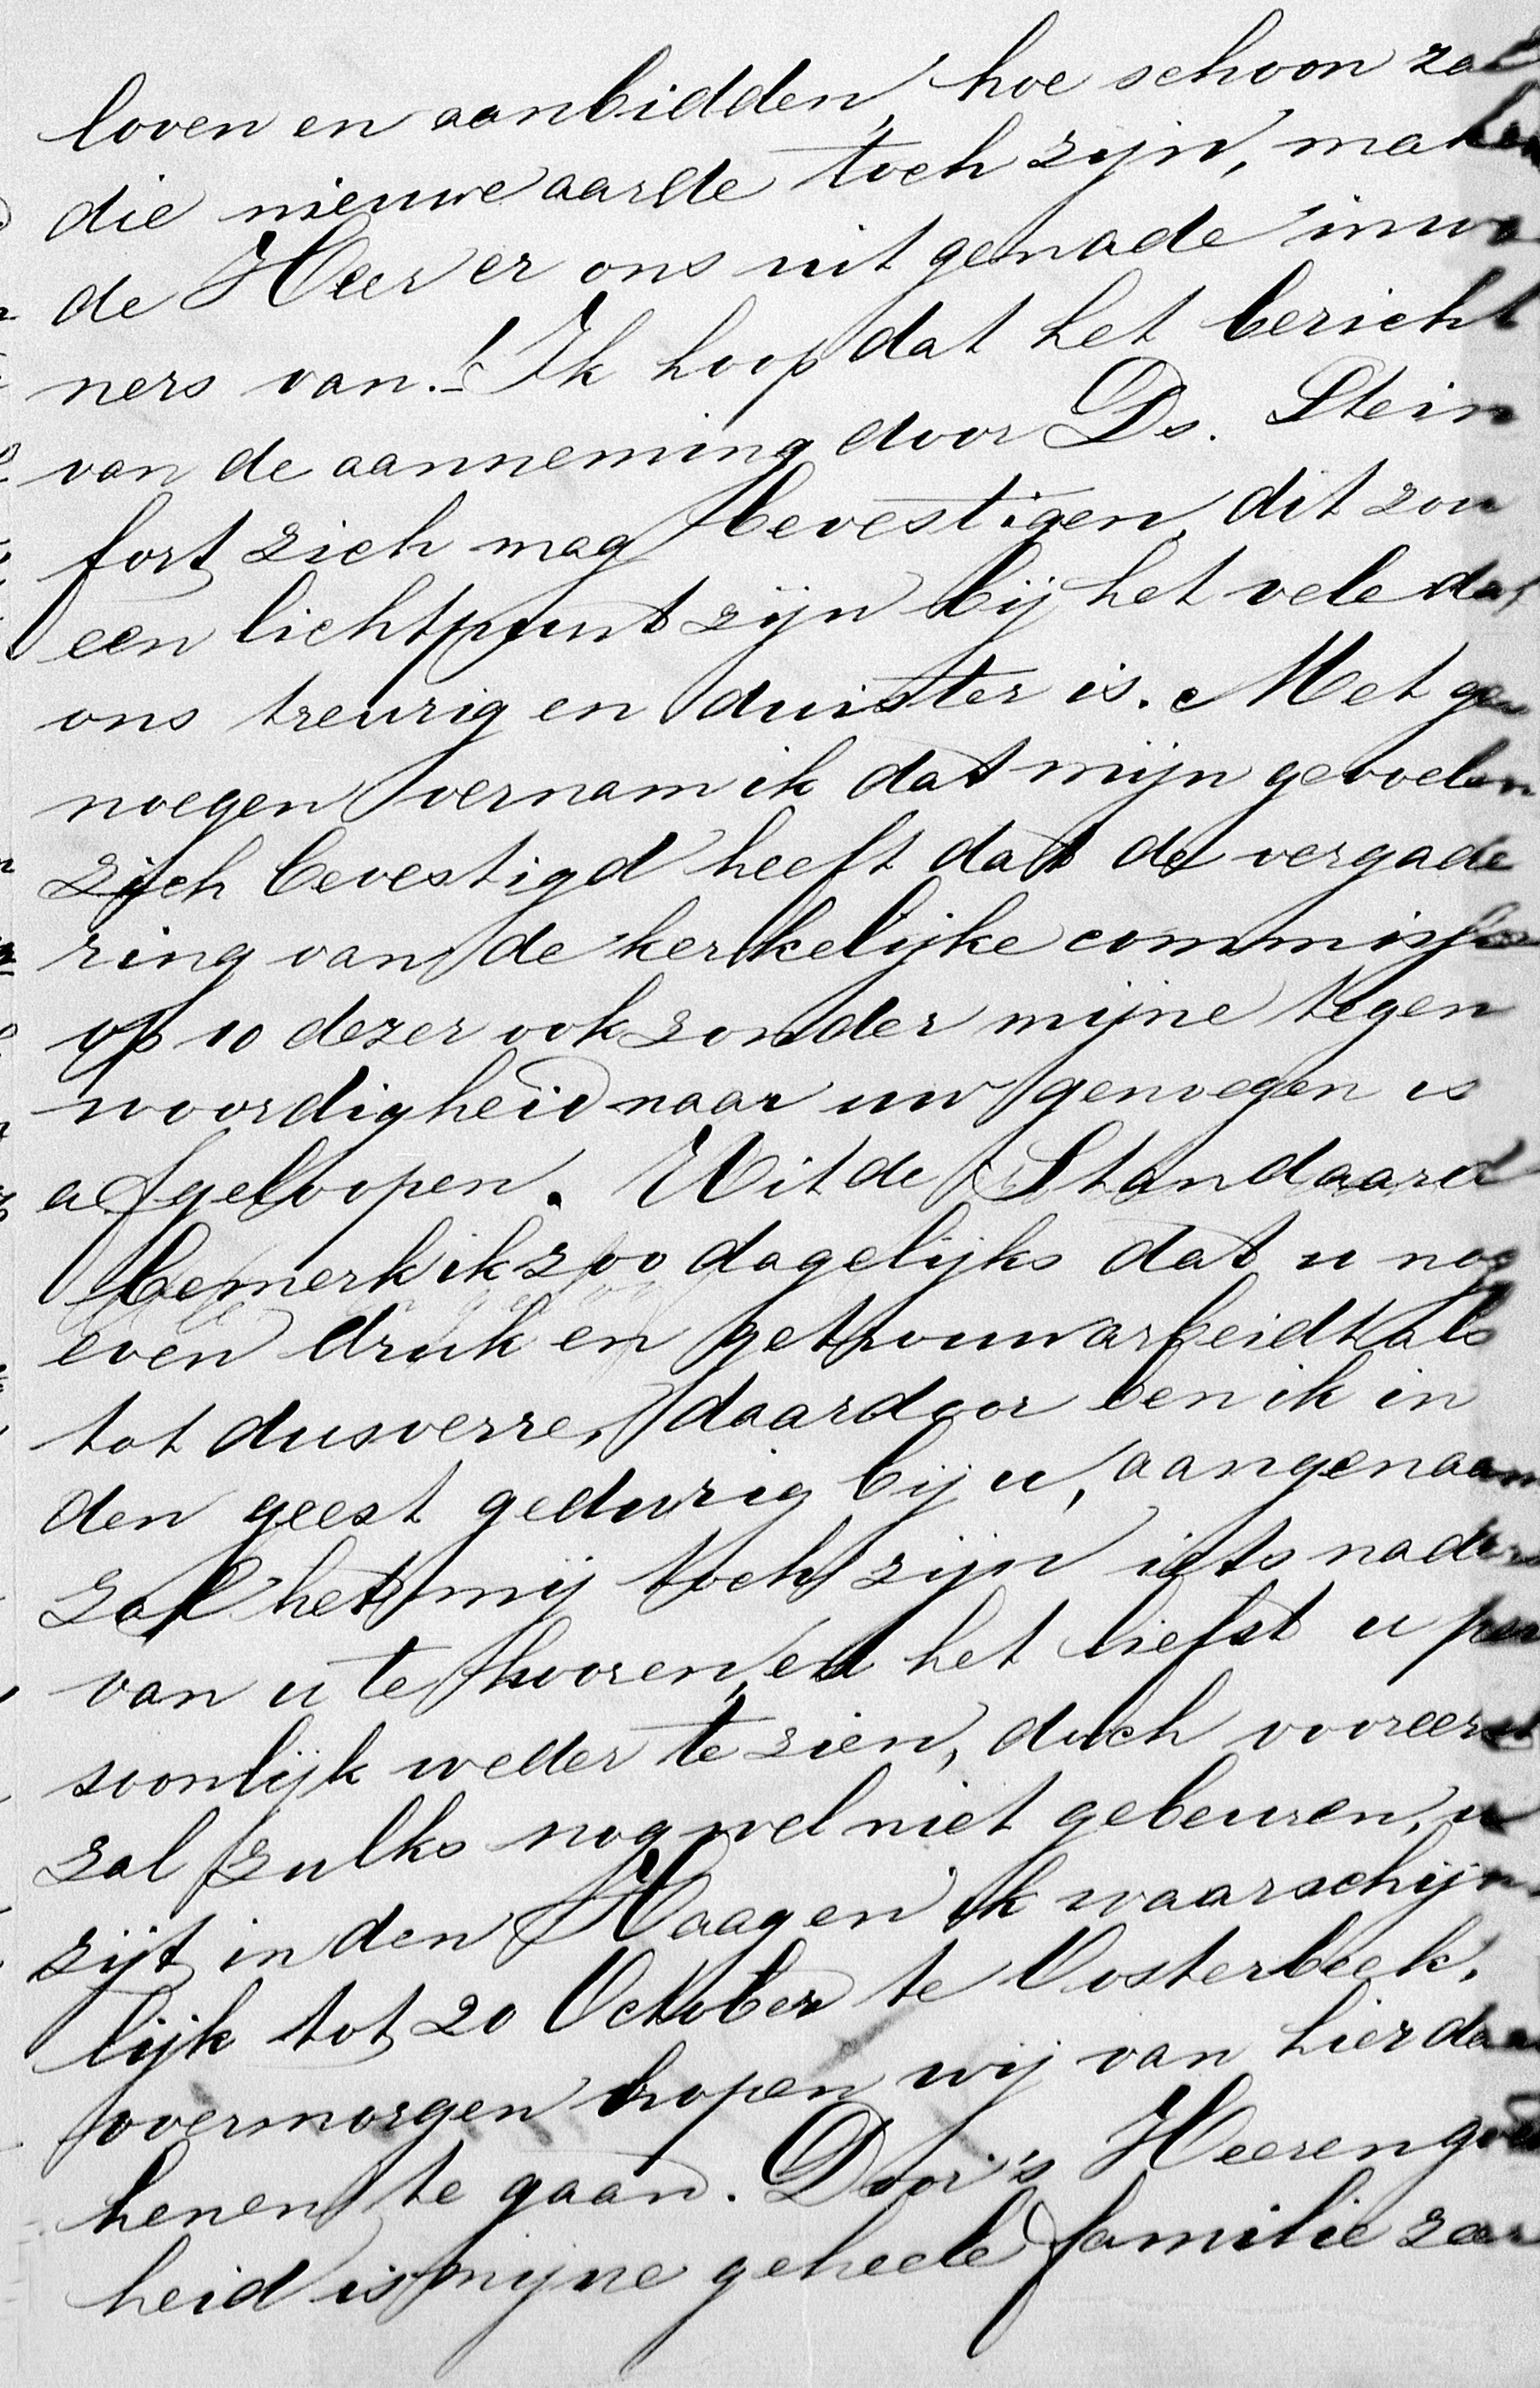 loven en aanbidden, hoe schoon zal
die nieuwe aarde toch zijn, maken
de Heer er ons uit genade inwo
ners van.! Ik hoop dat het bericht
van de aanneming door Ds. Stein
fort zich mag bevestigen, dit zou
een lichtpunt zijn bij het vele dat
ons treurig en duister is. Met ge
noegen vernam ik dat mijn gevoelen
zich bevestigd heeft dat de vergade
ring van de kerkelijke commissie
op 10 dezer ook zonder mijne tegen
woordigheid naar uw genoegen is
afgeloopen. Uit de Standaard
bemerk ik zoo dagelijks dat u nog
even druk en getrouw arbeidt als
tot dusverre, daardoor ben ik in
den geest gedurig bij u, aangenaam
zal het mij toch zijn iets nader
van u te hooren, en het liefst u per
soonlijk weder te zien, doch vooreerst
zal zulks nog wel niet gebeuren, u
zijt in den Haag en ik waarschijn
lijk tot 20 October te Oosterbeek,
overmorgen hopen wij van hier daar
henen te gaan. Door 's Heeren goed
heid is mijne geheele familie zeer